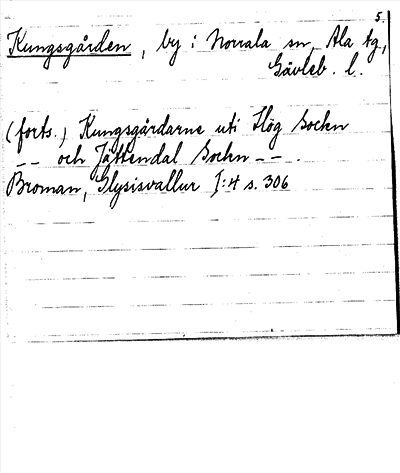 5.
Kungsgården, by i Norrala sn, Ala tg,
Gävleb. l.
(forts.) Kungsgårdarne uti Hög Sockn
-- och Jättendal Sockn --.
Broman, Glysisvallur I:4 s. 306